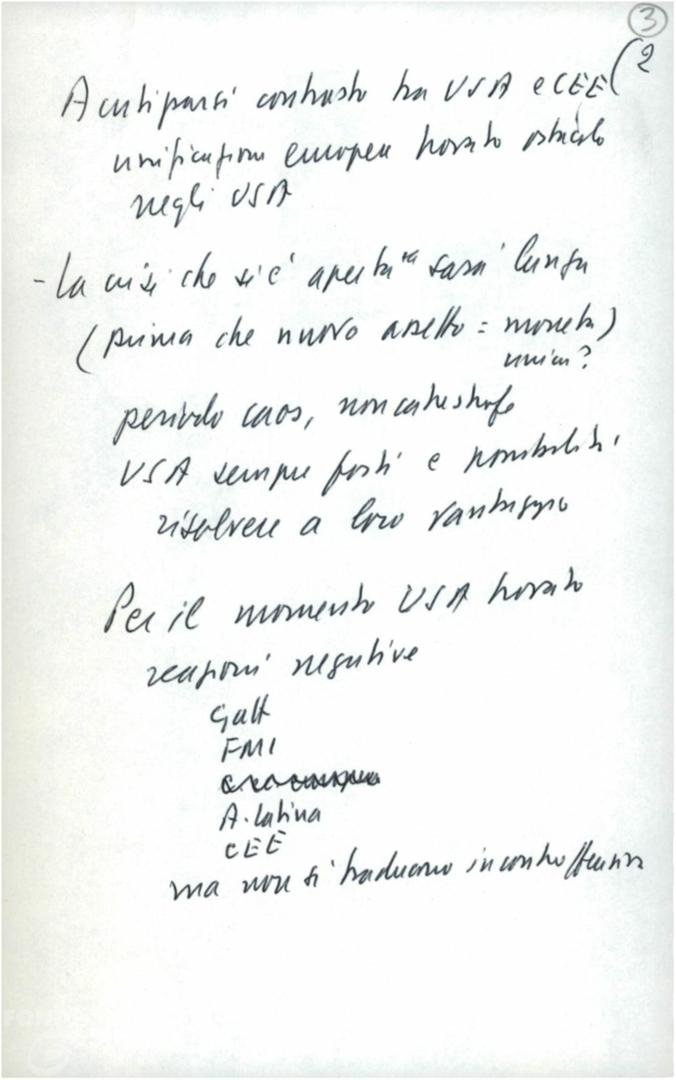 3
(2
Acutiparsi contrasto tra USA e CEE
unificazione europea trovato ostacolo
negli USA
- La crisi che si è aperta sarà lunga
(prima che nuovo assetto = moneta)
unica?
periodo caos, non catastrofe
USA sempre forti e possibilità
risolvere a loro vantaggio
Per il momento USA trovato
reazioni negative
Gatt
FMI
A. latina
CEE
ma non si traducono in controffensiva